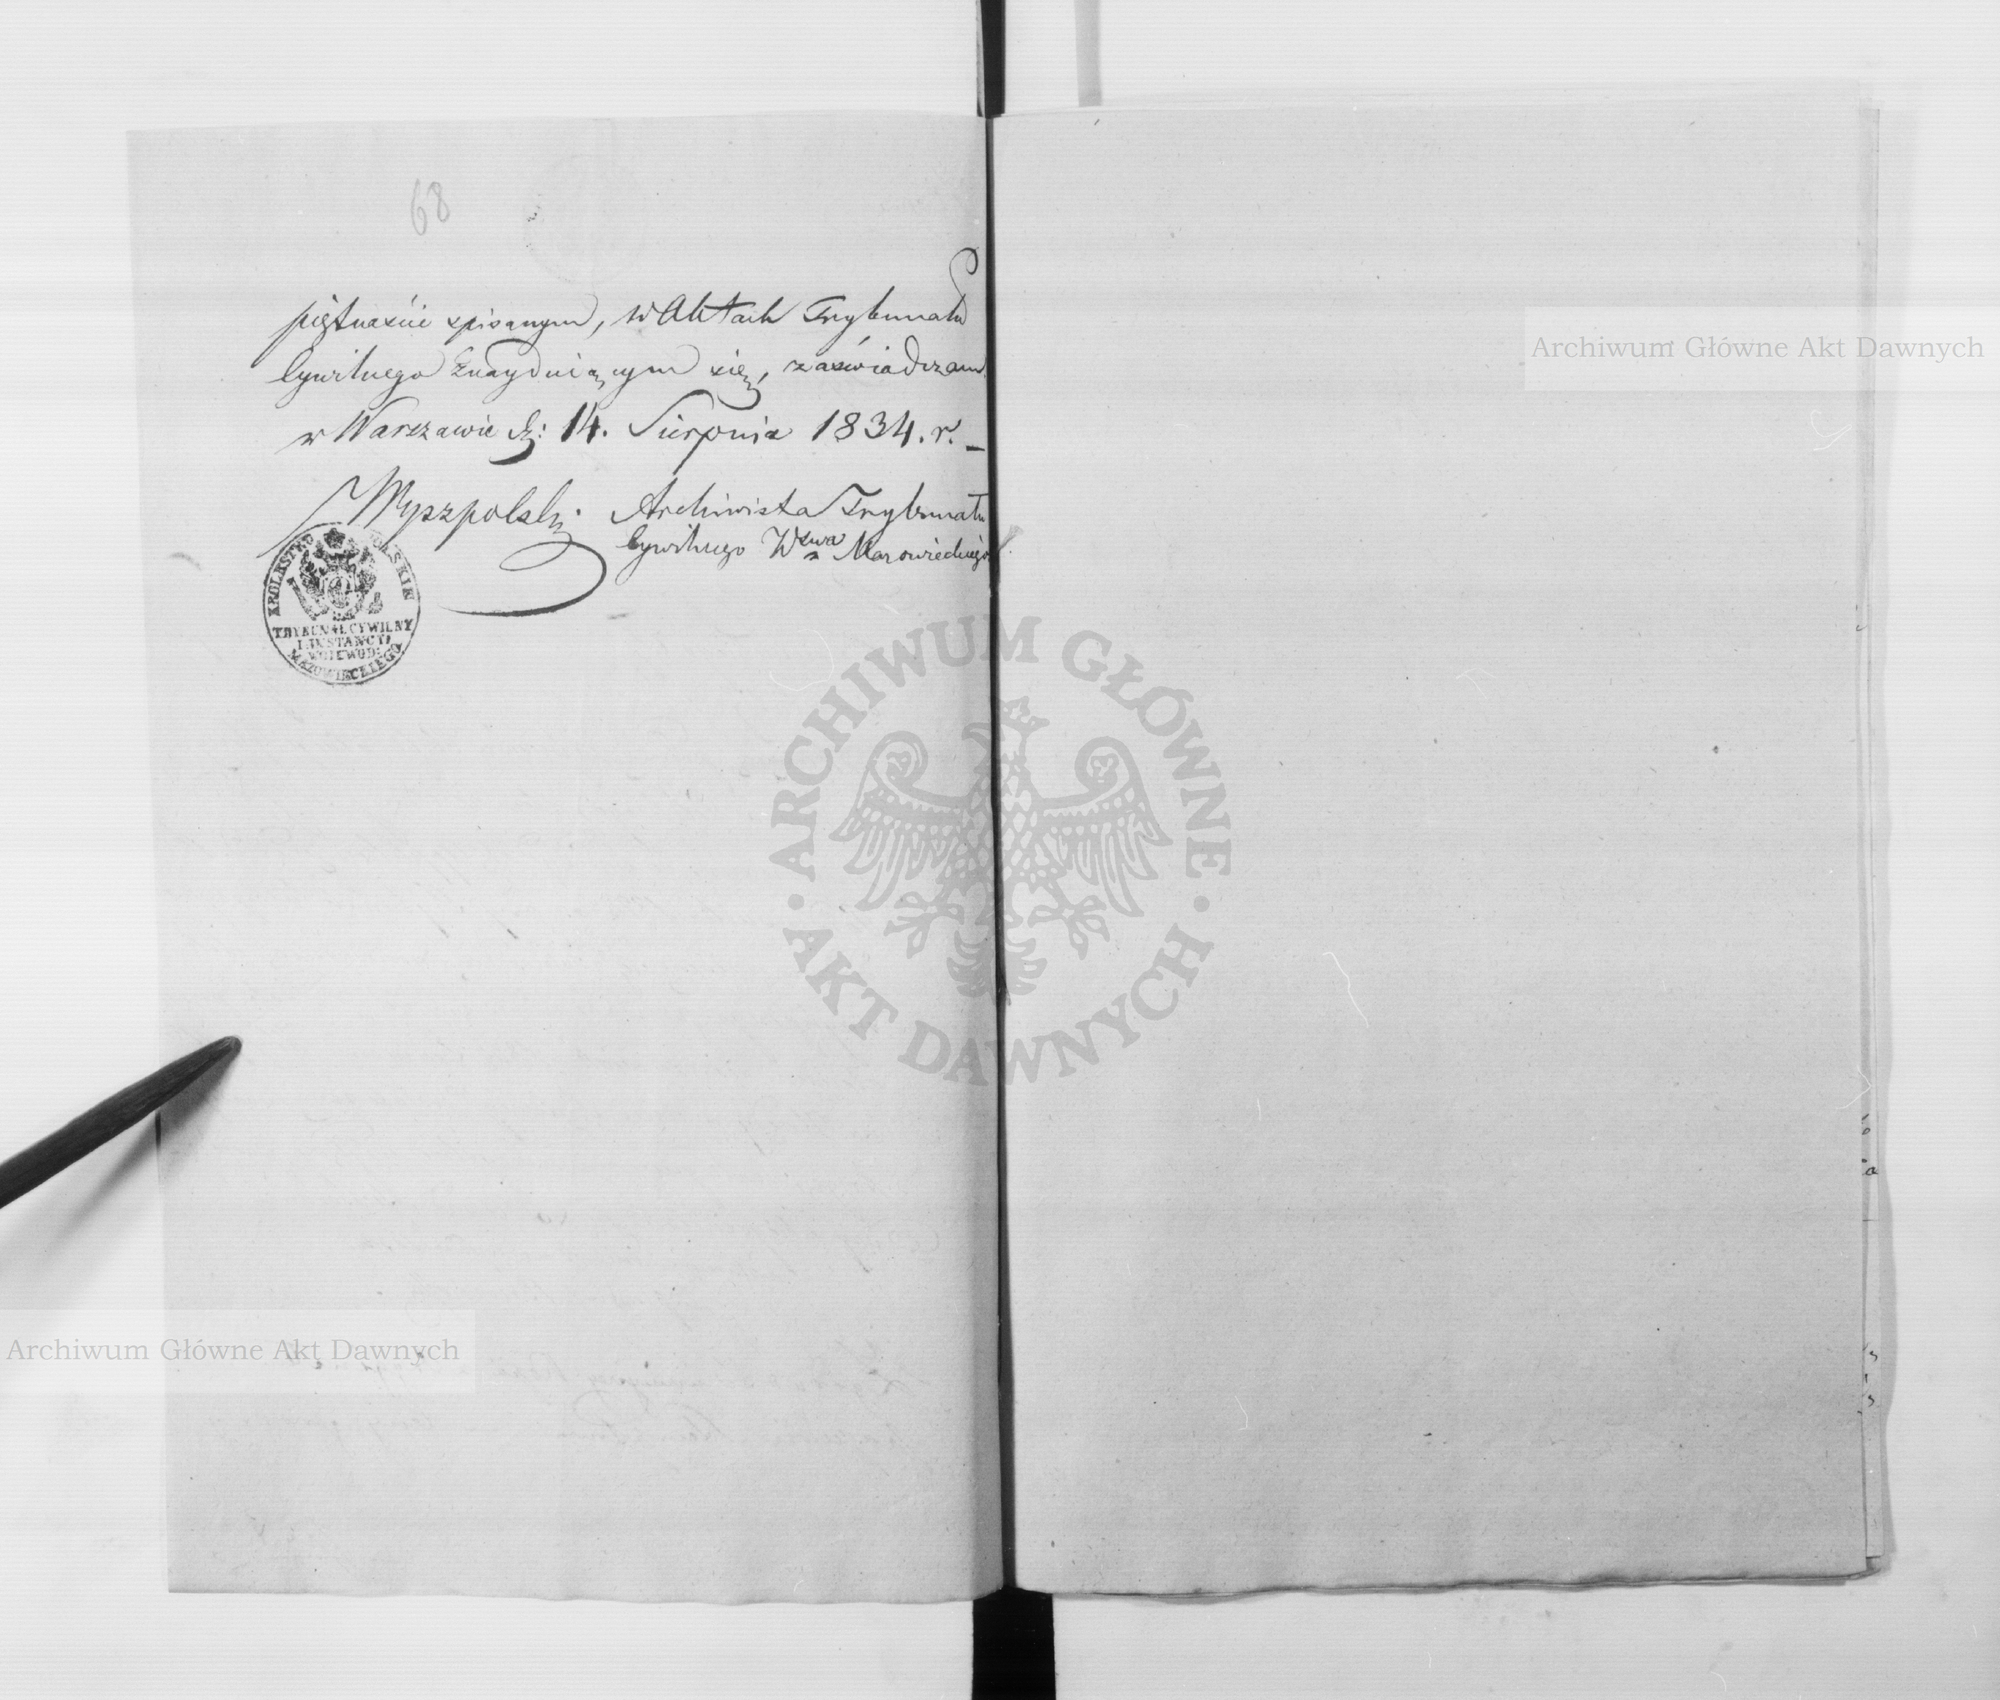 68
piętnaście spisanym, w Aktach Trybunału
Cywilnego znayduiącym się, zaświadczam.
w Warszawie d: 14. Sierpnia 1834. r. _
Wyszpolski. Archiwista Trybunału
Cywilnego Wztwa Mazowieckiego.
KRÓLESTWO POLSKIE
TRYBUNAŁ CYWILNY
I. INSTANCYI
WOIEWOD:
MAZOWIECKIEGO
Archiwum Główne Akt Dawnych
ARCHIWUM GŁÓWNE
AKT DAWNYCH
Archiwum Główne Akt Dawnych